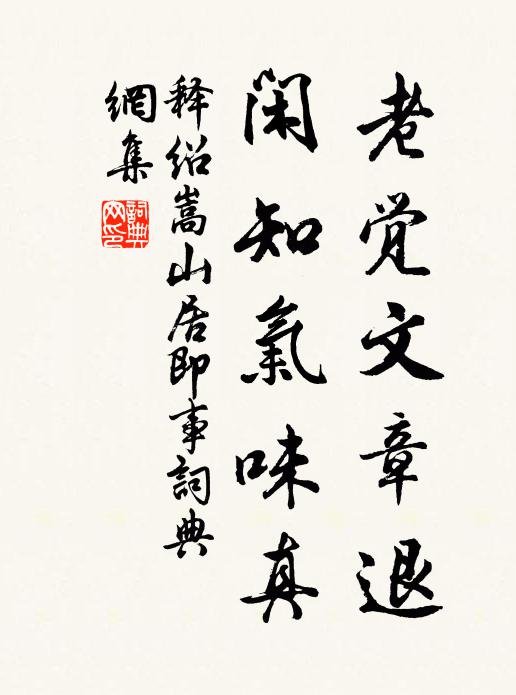 老觉文章退
閑知氣味真
释绍嵩山居即事詞典
網集
詞典網印